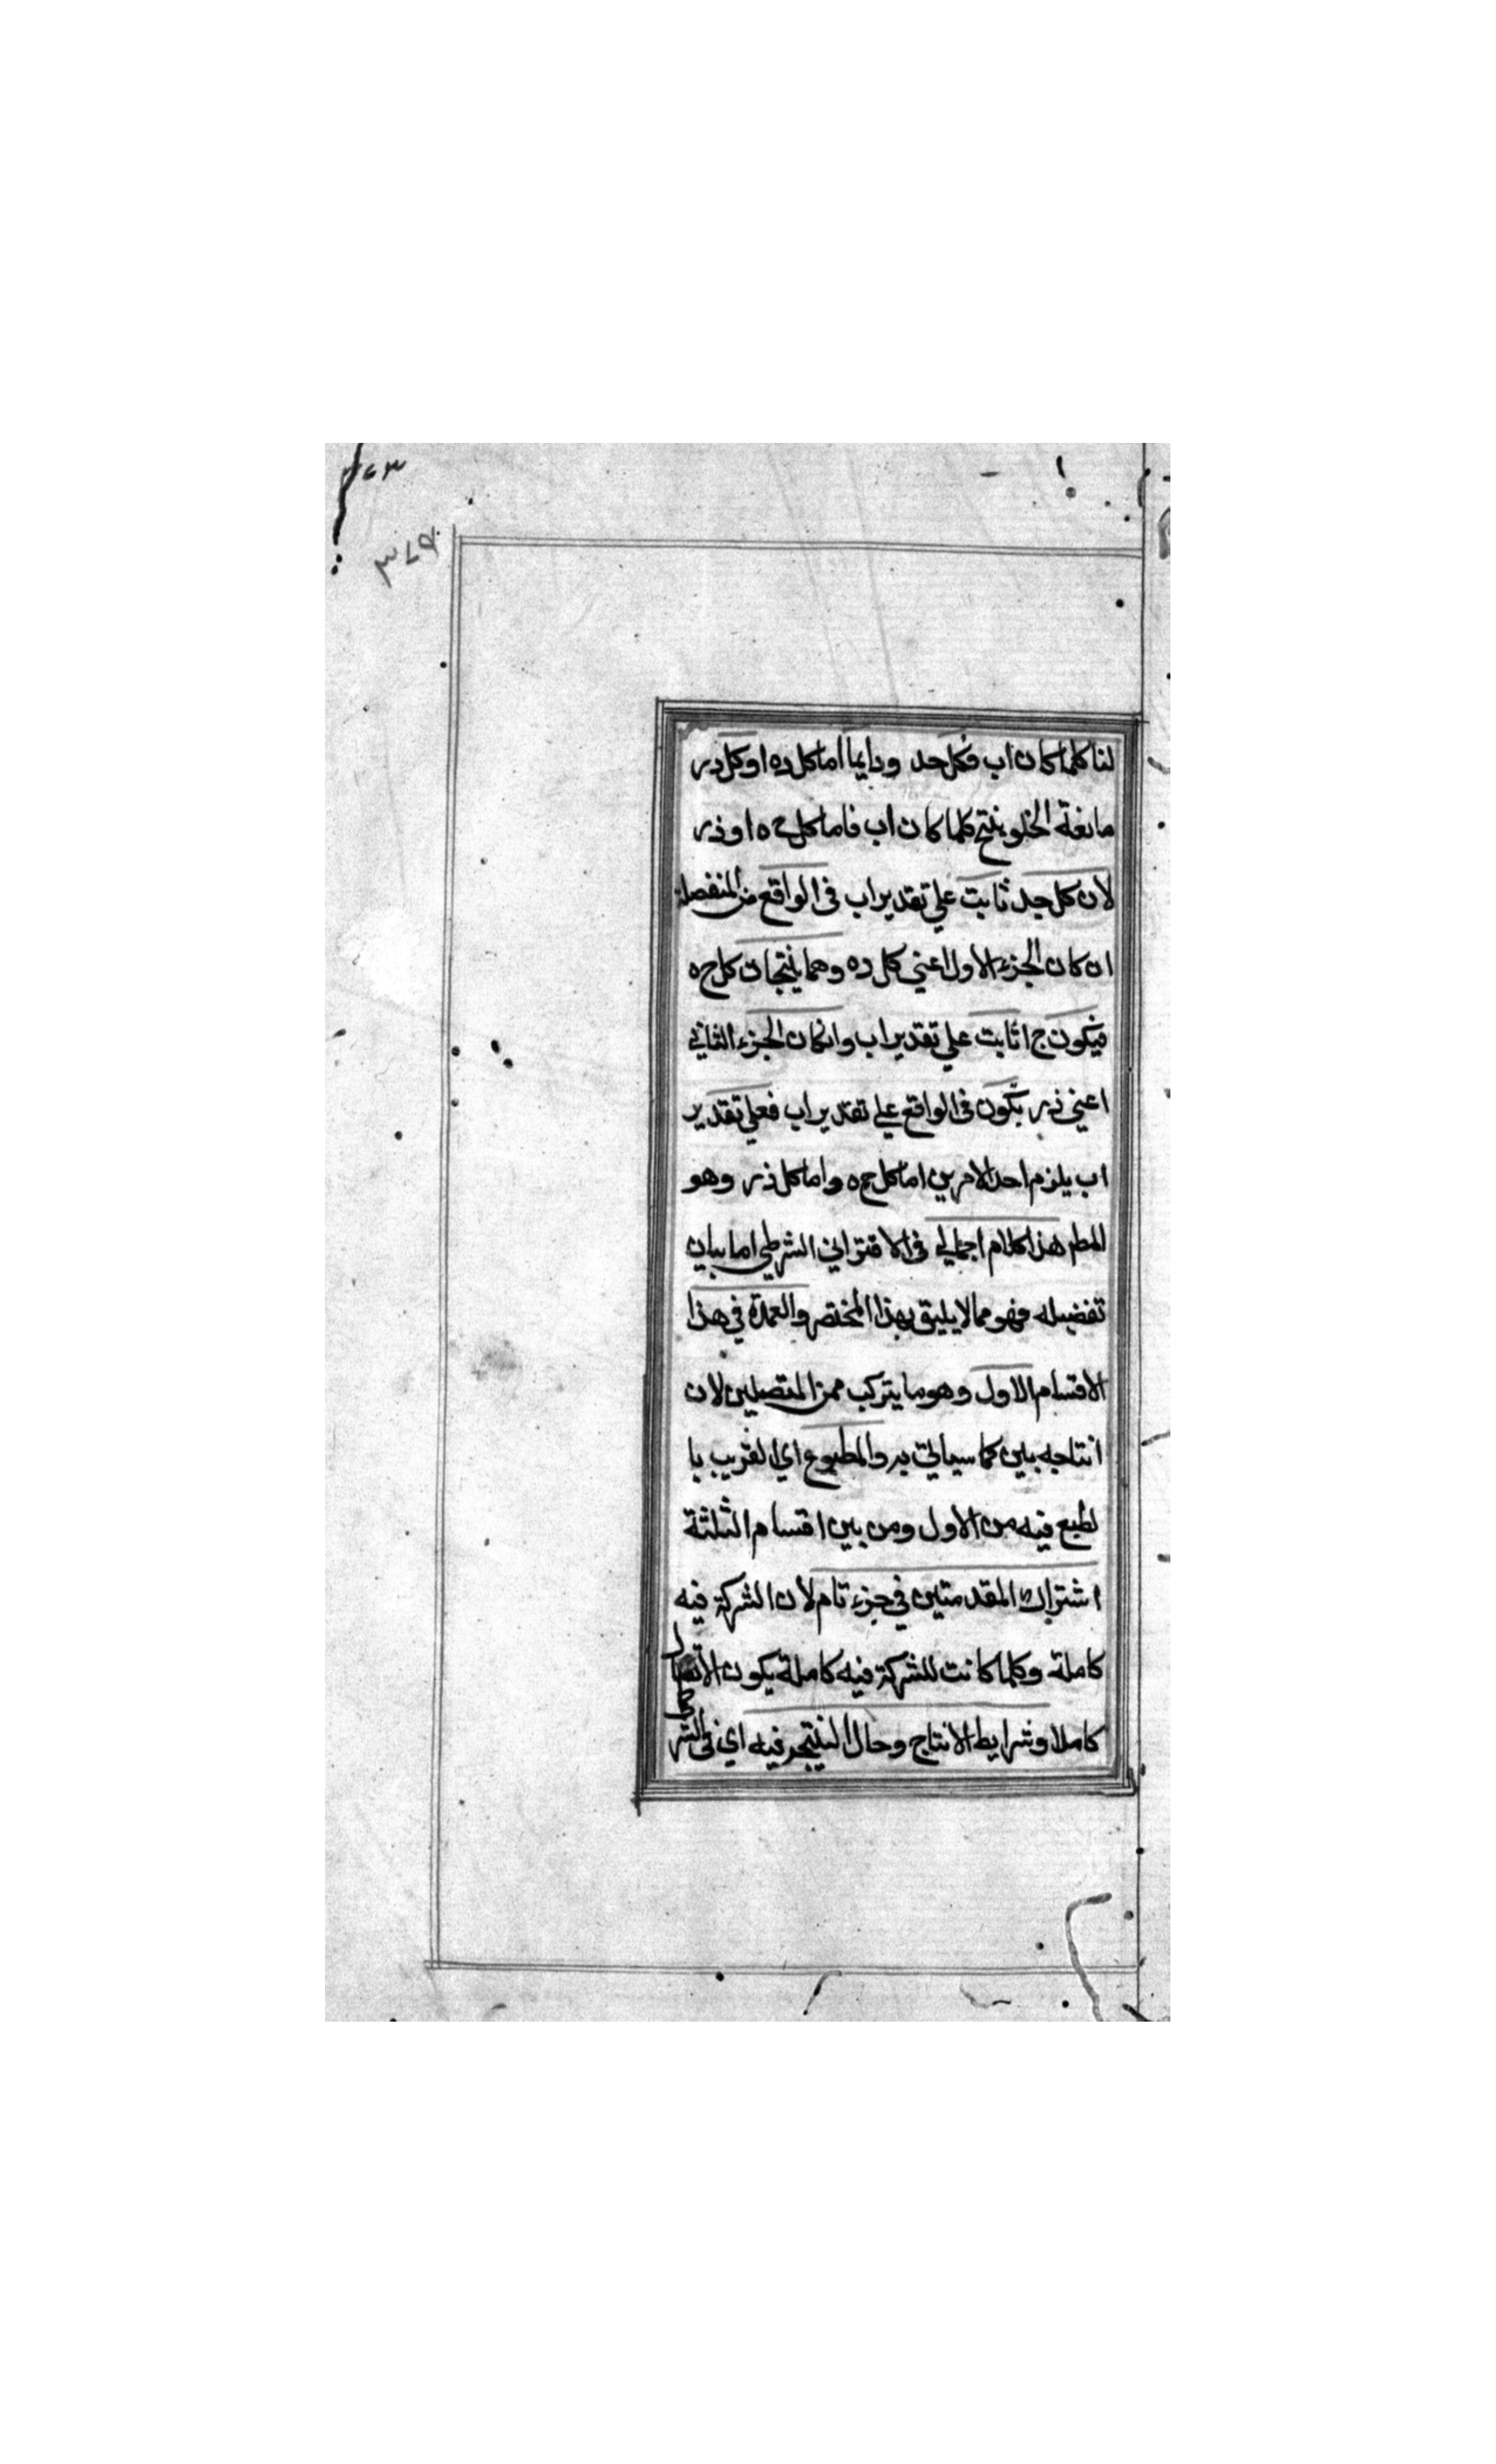 ٣٧٩
لنا كلما كان اب فكل حد ودايما اما كل ده او كل در
مانعة الخلو ينتج كلما كان اب فاما كل ح ه او در
لان كل جد ثابت علي تقدير اب في الواقع من المنفصلة
ان كان الجزء الاول اعني كل ده وهما ينتجان كل ح ه
فيكون ج ا ثابت علي تقدير اب وانكان الجزء الثاني
اعني در يكون في الواقع علي تقدير اب فعلي تقدير
اب يلزم احد الامرين اما كل ج ه واما كل در وهو
المط هذا كلام اجمالي في الاقتراني الشرطي اما بيان
تفضيله فهو مما لا يليق بهذا المختصر والعمدة في هذا
الاقسام الاول وهو ما يتركب من المتصلين لان
انتاجه بين كما سياتي والمطبوع اي القريب با
لطبع فيه من الاول ومن بين اقسام الثلثة
اشتراك المقدمتين في جزء تام لان الشركة فيه
كاملة وكلما كانت للشركة فيه كاملة يكون الاتصال
كاملا وشرايط الانتاج وحال النتيجة فيه اي في الشر